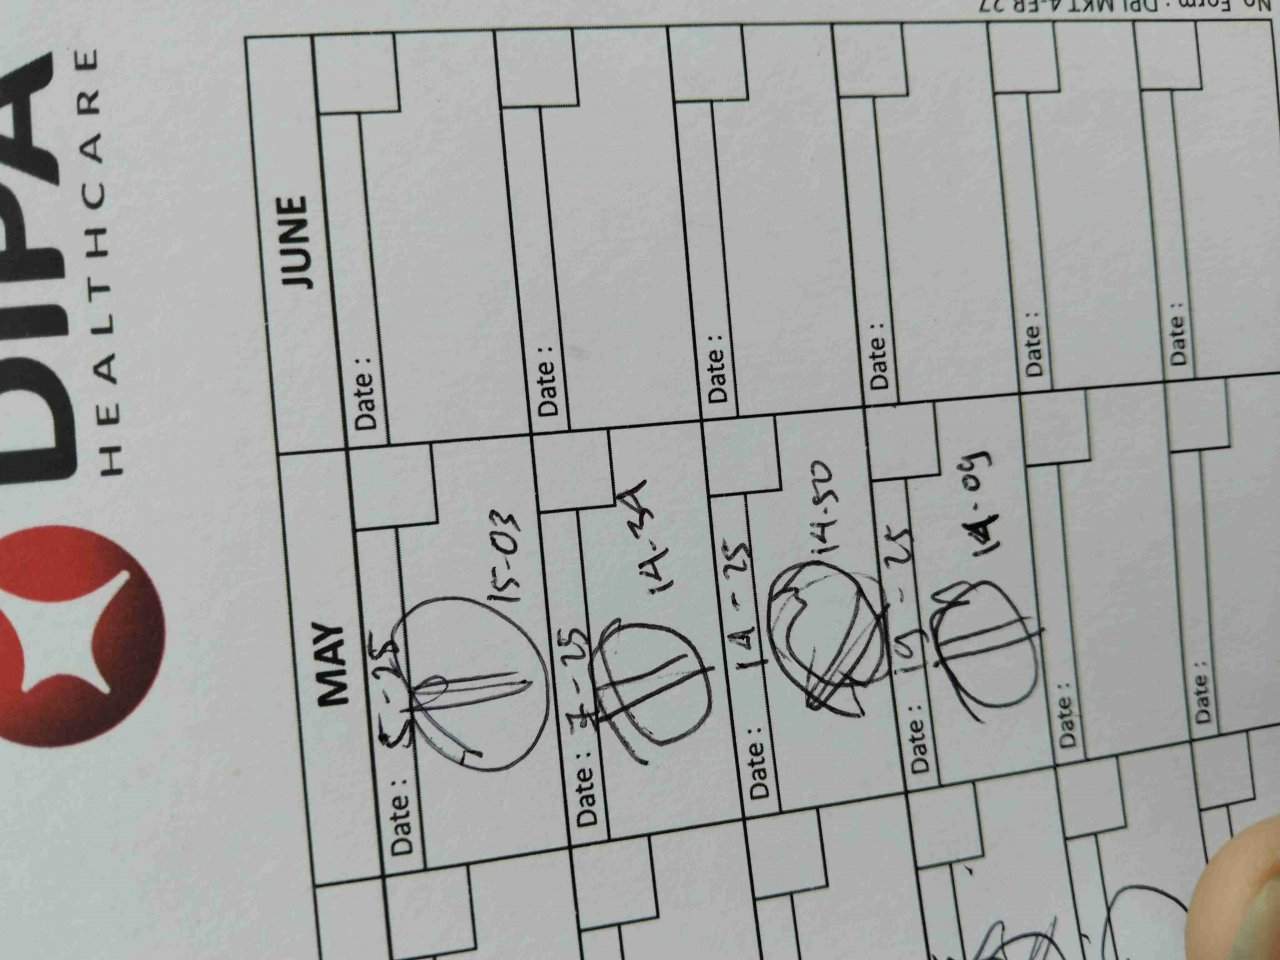 No Form : DPI.MKT.4-FR.27
DIPA
HEALTHCARE
MAY
JUNE
Date : 5-25
15-03
Date :
Date : 7-25
14-34
Date :
Date : 14-25
14-50
Date :
Date : 19-25
14-09
Date :
Date :
Date :
Date :
Date :